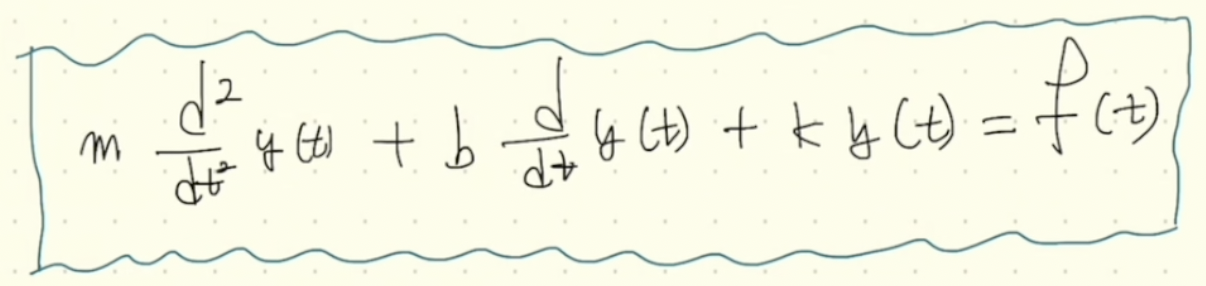 m d²/dt² y(t) + b d/dt y(t) + k y(t) = f(t)